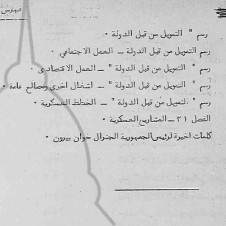 فهرس
رسم " التمويل من قبل الدولة "
رسم التمويل من قبل الدولة ــ العمل الاجتماعي "
رسم " التمويل من قبل الدولة " ــ العمل الاقتصادي "
رسم " التمويل من قبل الدولة " ــ اشغال اخرى ومصالح عامة "
رسم " التمويل من قبل الدولة " ــ الخطط العسكرية "
الفصل ٢١ ــ المشاريع العسكرية "
كلمات اخيرة لرئيس الجمهورية الجنرال خوان بيرون "